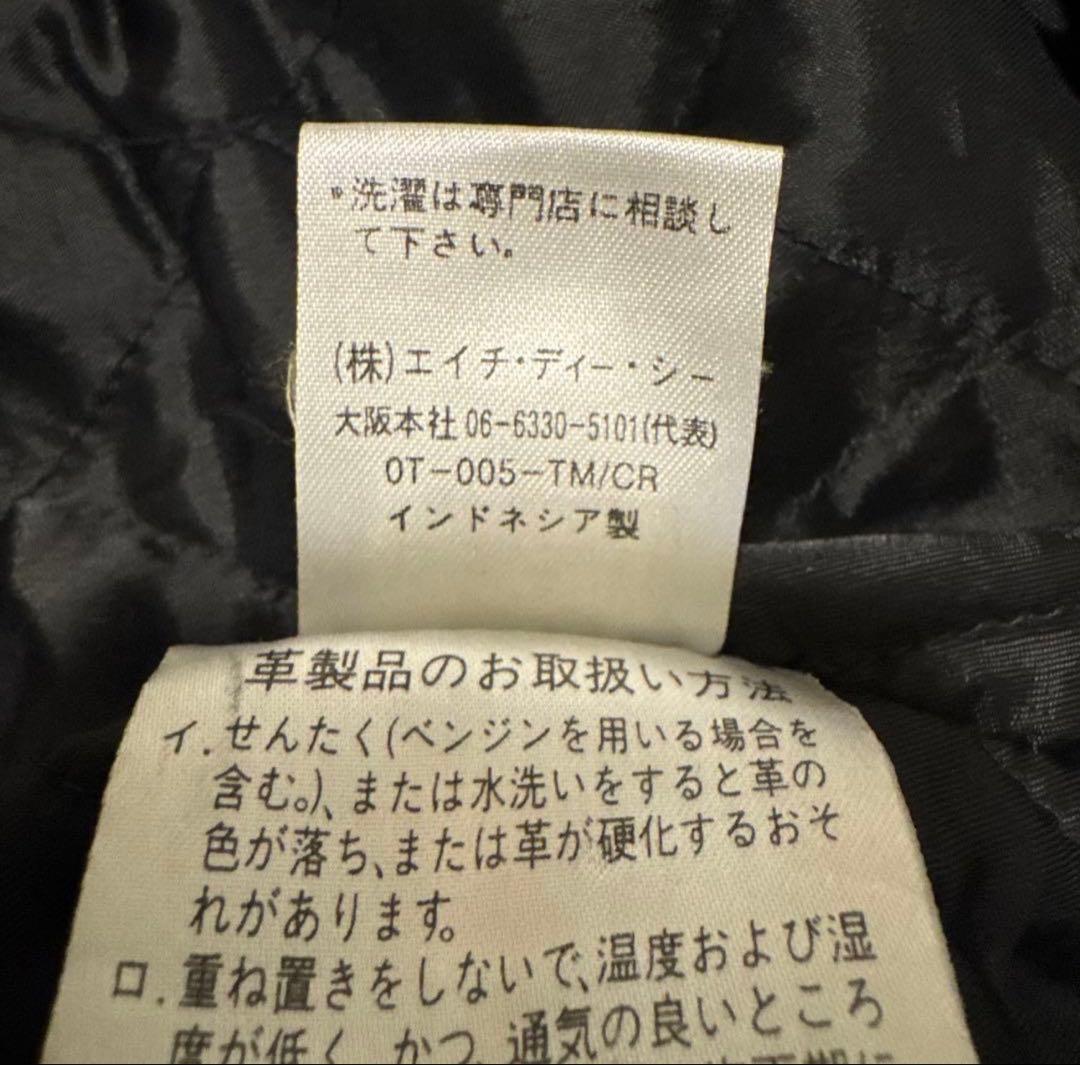 *洗濯は専門店に相談し
て下さい。
(株)エイチ・ディー・シー
大阪本社 06-6330-5101(代表)
OT-005-TM/CR
インドネシア製
革製品のお取扱い方法
イ.せんたく(ベンジンを用いる場合を
含む。)、または水洗いをすると革の
色が落ち、または革が硬化するおそ
れがあります。
ロ.重ね置きをしないで、温度および湿
度が低く、かつ、通気の良いところ